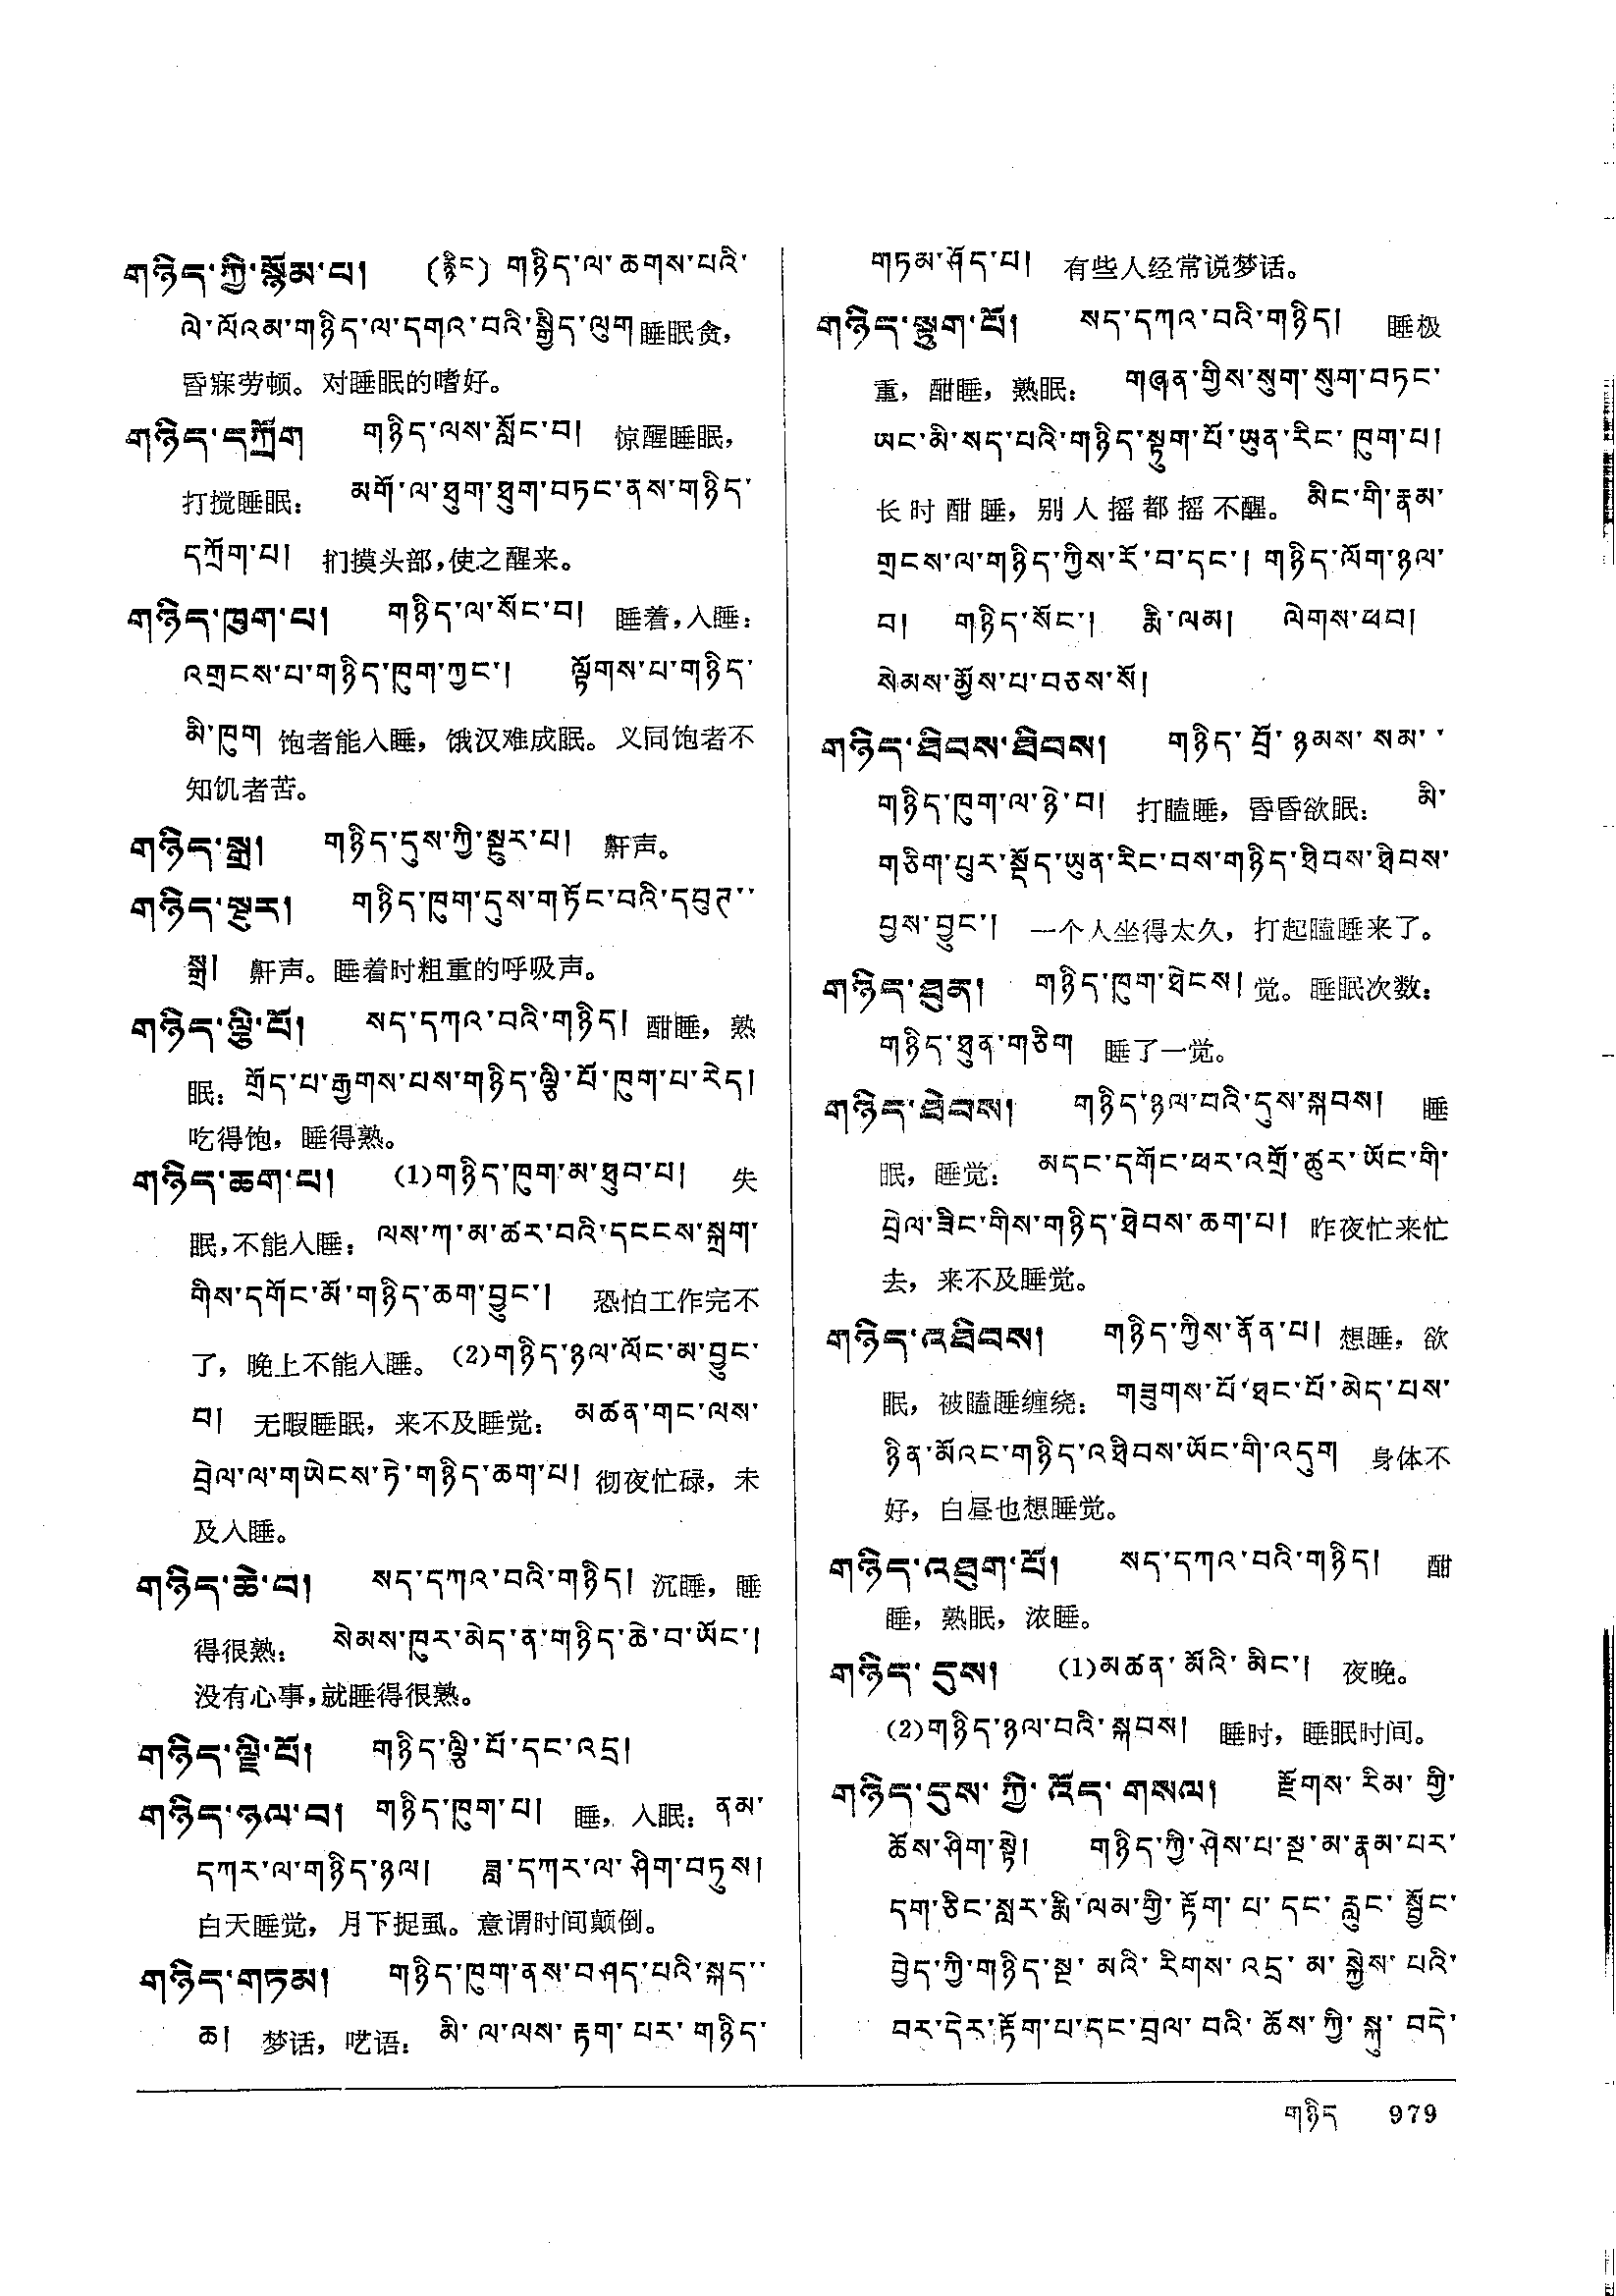 གཉིད་ཀྱི་སྙོམ་པ། (རྙིང) གཉིད་ལ་ཆགས་པའི་
ལེ་ལོའམ་གཉིད་ལ་དགའ་བའི་སྒྱིད་ལུག 睡眠贪，
昏寐劳顿。对睡眠的嗜好。
གཉིད་དཀྲོག གཉིད་ལས་སློང་བ། 惊醒睡眠，
打搅睡眠： མགོ་ལ་ཐུག་ཐུག་བཏང་ནས་གཉིད་
དཀྲོག་པ། 扪摸头部，使之醒来。
གཉིད་ཁུག་པ། གཉིད་ལ་སོང་བ། 睡着，入睡：
འགྲངས་པ་གཉིད་ཁུག་ཀྱང་། ལྟོགས་པ་གཉིད་
མི་ཁུག 饱者能入睡，饿汉难成眠。义同饱者不
知饥者苦。
གཉིད་སྒྲ། གཉིད་དུས་ཀྱི་སྔུར་པ། 鼾声。
གཉིད་སྔུར། གཉིད་ཁུག་དུས་གཏོང་བའི་དབུཊ་
སྒྲ། 鼾声。睡着时粗重的呼吸声。
གཉིད་ལྕི་པོ། སད་དཀའ་བའི་གཉིད། 酣睡，熟
眠： གྲོད་པ་རྒྱགས་པས་གཉིད་ལྕི་པོ་ཁུག་པ་རེད།
吃得饱，睡得熟。
གཉིད་ཆག་པ། (1)གཉིད་ཁུག་མ་ཐུབ་པ། 失
眠，不能入睡： ལས་ཀ་མ་ཚར་བའི་དངངས་སྐྲག་
གིས་དགོང་མོ་གཉིད་ཆག་བྱུང་། 恐怕工作完不
了，晚上不能入睡。(2)གཉིད་ཉལ་ལོང་མ་བྱུང་
བ། 无暇睡眠，来不及睡觉： མཚན་གང་ལས་
བྲེལ་ལ་གཡེངས་ཏེ་གཉིད་ཆག་པ། 彻夜忙碌，未
及入睡。
གཉིད་ཆེ་བ། སད་དཀའ་བའི་གཉིད། 沉睡，睡
得很熟： སེམས་ཁུར་མེད་ན་གཉིད་ཆེ་བ་ཡོང་།
没有心事，就睡得很熟。
གཉིད་ལྗི་པོ། གཉིད་ལྕི་པོ་དང་འདྲ།
གཉིད་ཉལ་བ། གཉིད་ཁུག་པ། 睡，入眠： ནམ་
དཀར་ལ་གཉིད་ཉལ། ཟླ་དཀར་ལ་ཤིག་བཏུས།
白天睡觉，月下捉虱。意谓时间颠倒。
གཉིད་གཏམ། གཉིད་ཁུག་ནས་བཤད་པའི་སྐད་
ཆ། 梦话，呓语： མི་ལ་ལས་རྟག་པར་གཉིད་
གཏམ་ཤོད་པ། 有些人经常说梦话。
གཉིད་སྟུག་པོ། སད་དཀའ་བའི་གཉིད། 睡极
重，酣睡，熟眠： གཞན་གྱིས་སུག་སུག་བཏང་
ཡང་མི་སད་པའི་གཉིད་སྟུག་པོ་ཡུན་རིང་ཁུག་པ།
长时酣睡，别人摇都摇不醒。 མིང་གི་རྣམ་
གྲངས་ལ་གཉིད་ཀྱིས་རོ་བ་དང་། གཉིད་ལོག་ཉལ་
བ། གཉིད་སོང་། རྨི་ལམ། ལེགས་ཕབ།
སེམས་མྱོས་པ་བཅས་སོ།
གཉིད་ཐིབས་ཐིབས། གཉིད་བྲོ་ཉམས་སམ་
གཉིད་ཁུག་ལ་ཉེ་བ། 打瞌睡，昏昏欲眠： མི་
གཅིག་པུར་སྡོད་ཡུན་རིང་བས་གཉིད་ཐིབས་ཐིབས་
བྱས་བྱུང་། 一个人坐得太久，打起瞌睡来了。
གཉིད་ཐུན། གཉིད་ཁུག་ཐེངས། 觉。睡眠次数：
གཉིད་ཐུན་གཅིག 睡了一觉。
གཉིད་ཐེབས། གཉིད་ཉལ་བའི་དུས་སྐབས། 睡
眠，睡觉： མདང་དགོང་ཕར་འགྲོ་ཚུར་ཡོང་གི་
བྲེལ་ཟིང་གིས་གཉིད་ཐེབས་ཆག་པ། 昨夜忙来忙
去，来不及睡觉。
གཉིད་འཐིབས། གཉིད་ཀྱིས་ནོན་པ། 想睡，欲
眠，被瞌睡缠绕： གཟུགས་པོ་ཐང་པོ་མེད་པས་
ཉིན་མོའང་གཉིད་འཐིབས་ཡོང་གི་འདུག 身体不
好，白昼也想睡觉。
གཉིད་འཐུག་པོ། སད་དཀའ་བའི་གཉིད། 酣
睡，熟眠，浓睡。
གཉིད་དུས། (1)མཚན་མོའི་མིང་། 夜晚。
(2)གཉིད་ཉལ་བའི་སྐབས། 睡时，睡眠时间。
གཉིད་དུས་ཀྱི་འོད་གསལ། རྫོགས་རིམ་གྱི་
ཆོས་ཤིག་སྟེ། གཉིད་ཀྱི་ཤེས་པ་སྔ་མ་རྣམ་པར་
དག་ཅིང་སླར་རྨི་ལམ་གྱི་རྟོག་པ་དང་རླུང་སྦྱོང་
བྱེད་ཀྱི་གཉིད་སྔ་མའི་རིགས་འདྲ་མ་སྐྱེས་པའི་
བར་དེར་རྟོག་པ་དང་བྲལ་བའི་ཆོས་ཀྱི་སྐུ་བདེ་
གཉིད 979